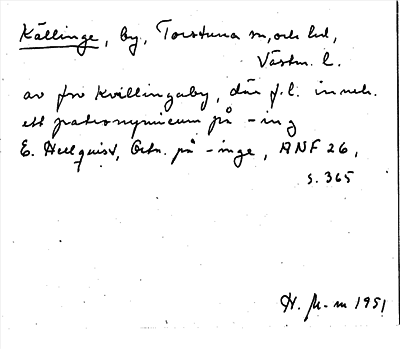 Källinge, by, Torstuna sn, och hd,
Västm. l.
av fsv Kvillingaby, där f.l. inneh.
ett patronymicum på -ing
E. Hellquist, Ortn. på -inge, ANF 26,
s. 365
H. 1951